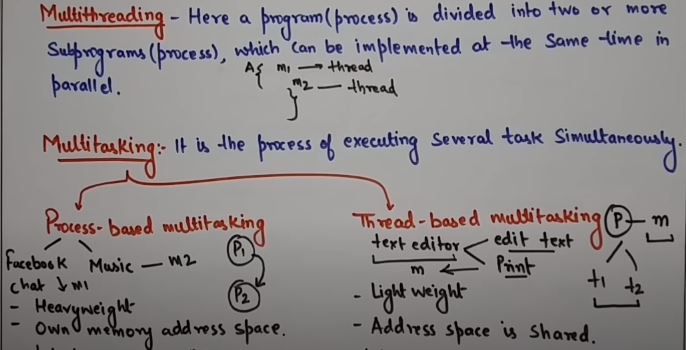 Multithreading - Here a program (process) is divided into two or more
Subprograms (process), which can be implemented at the same time in
parallel.
A{ m1 → thread
m2 — thread
}
Multitasking:- It is the process of executing several task simultaneously.
Process-based multitasking
Facebook Music — m2
chat ↓ m1
P1
P2
- Heavyweight
- Own memory address space.
Thread-based multitasking
text editor < edit text
Print
m ←
P — m
t1 t2
- Light weight
- Address space is shared.